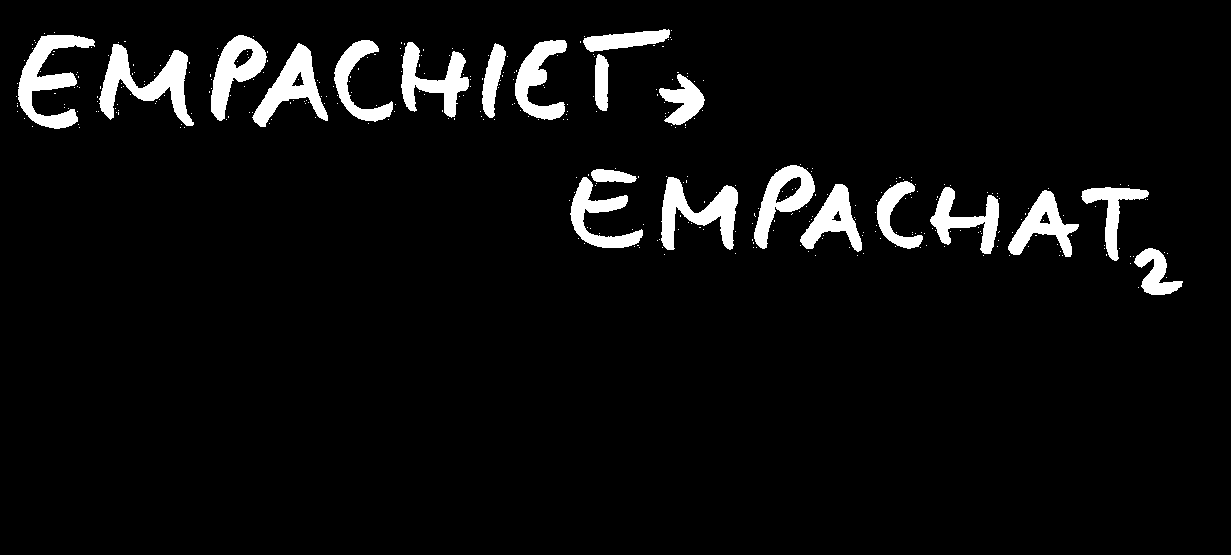 EMPACHIET →
EMPACHAT₂